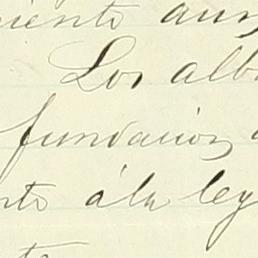 iente aun
Los alb
fundacion
nte á la ley
te